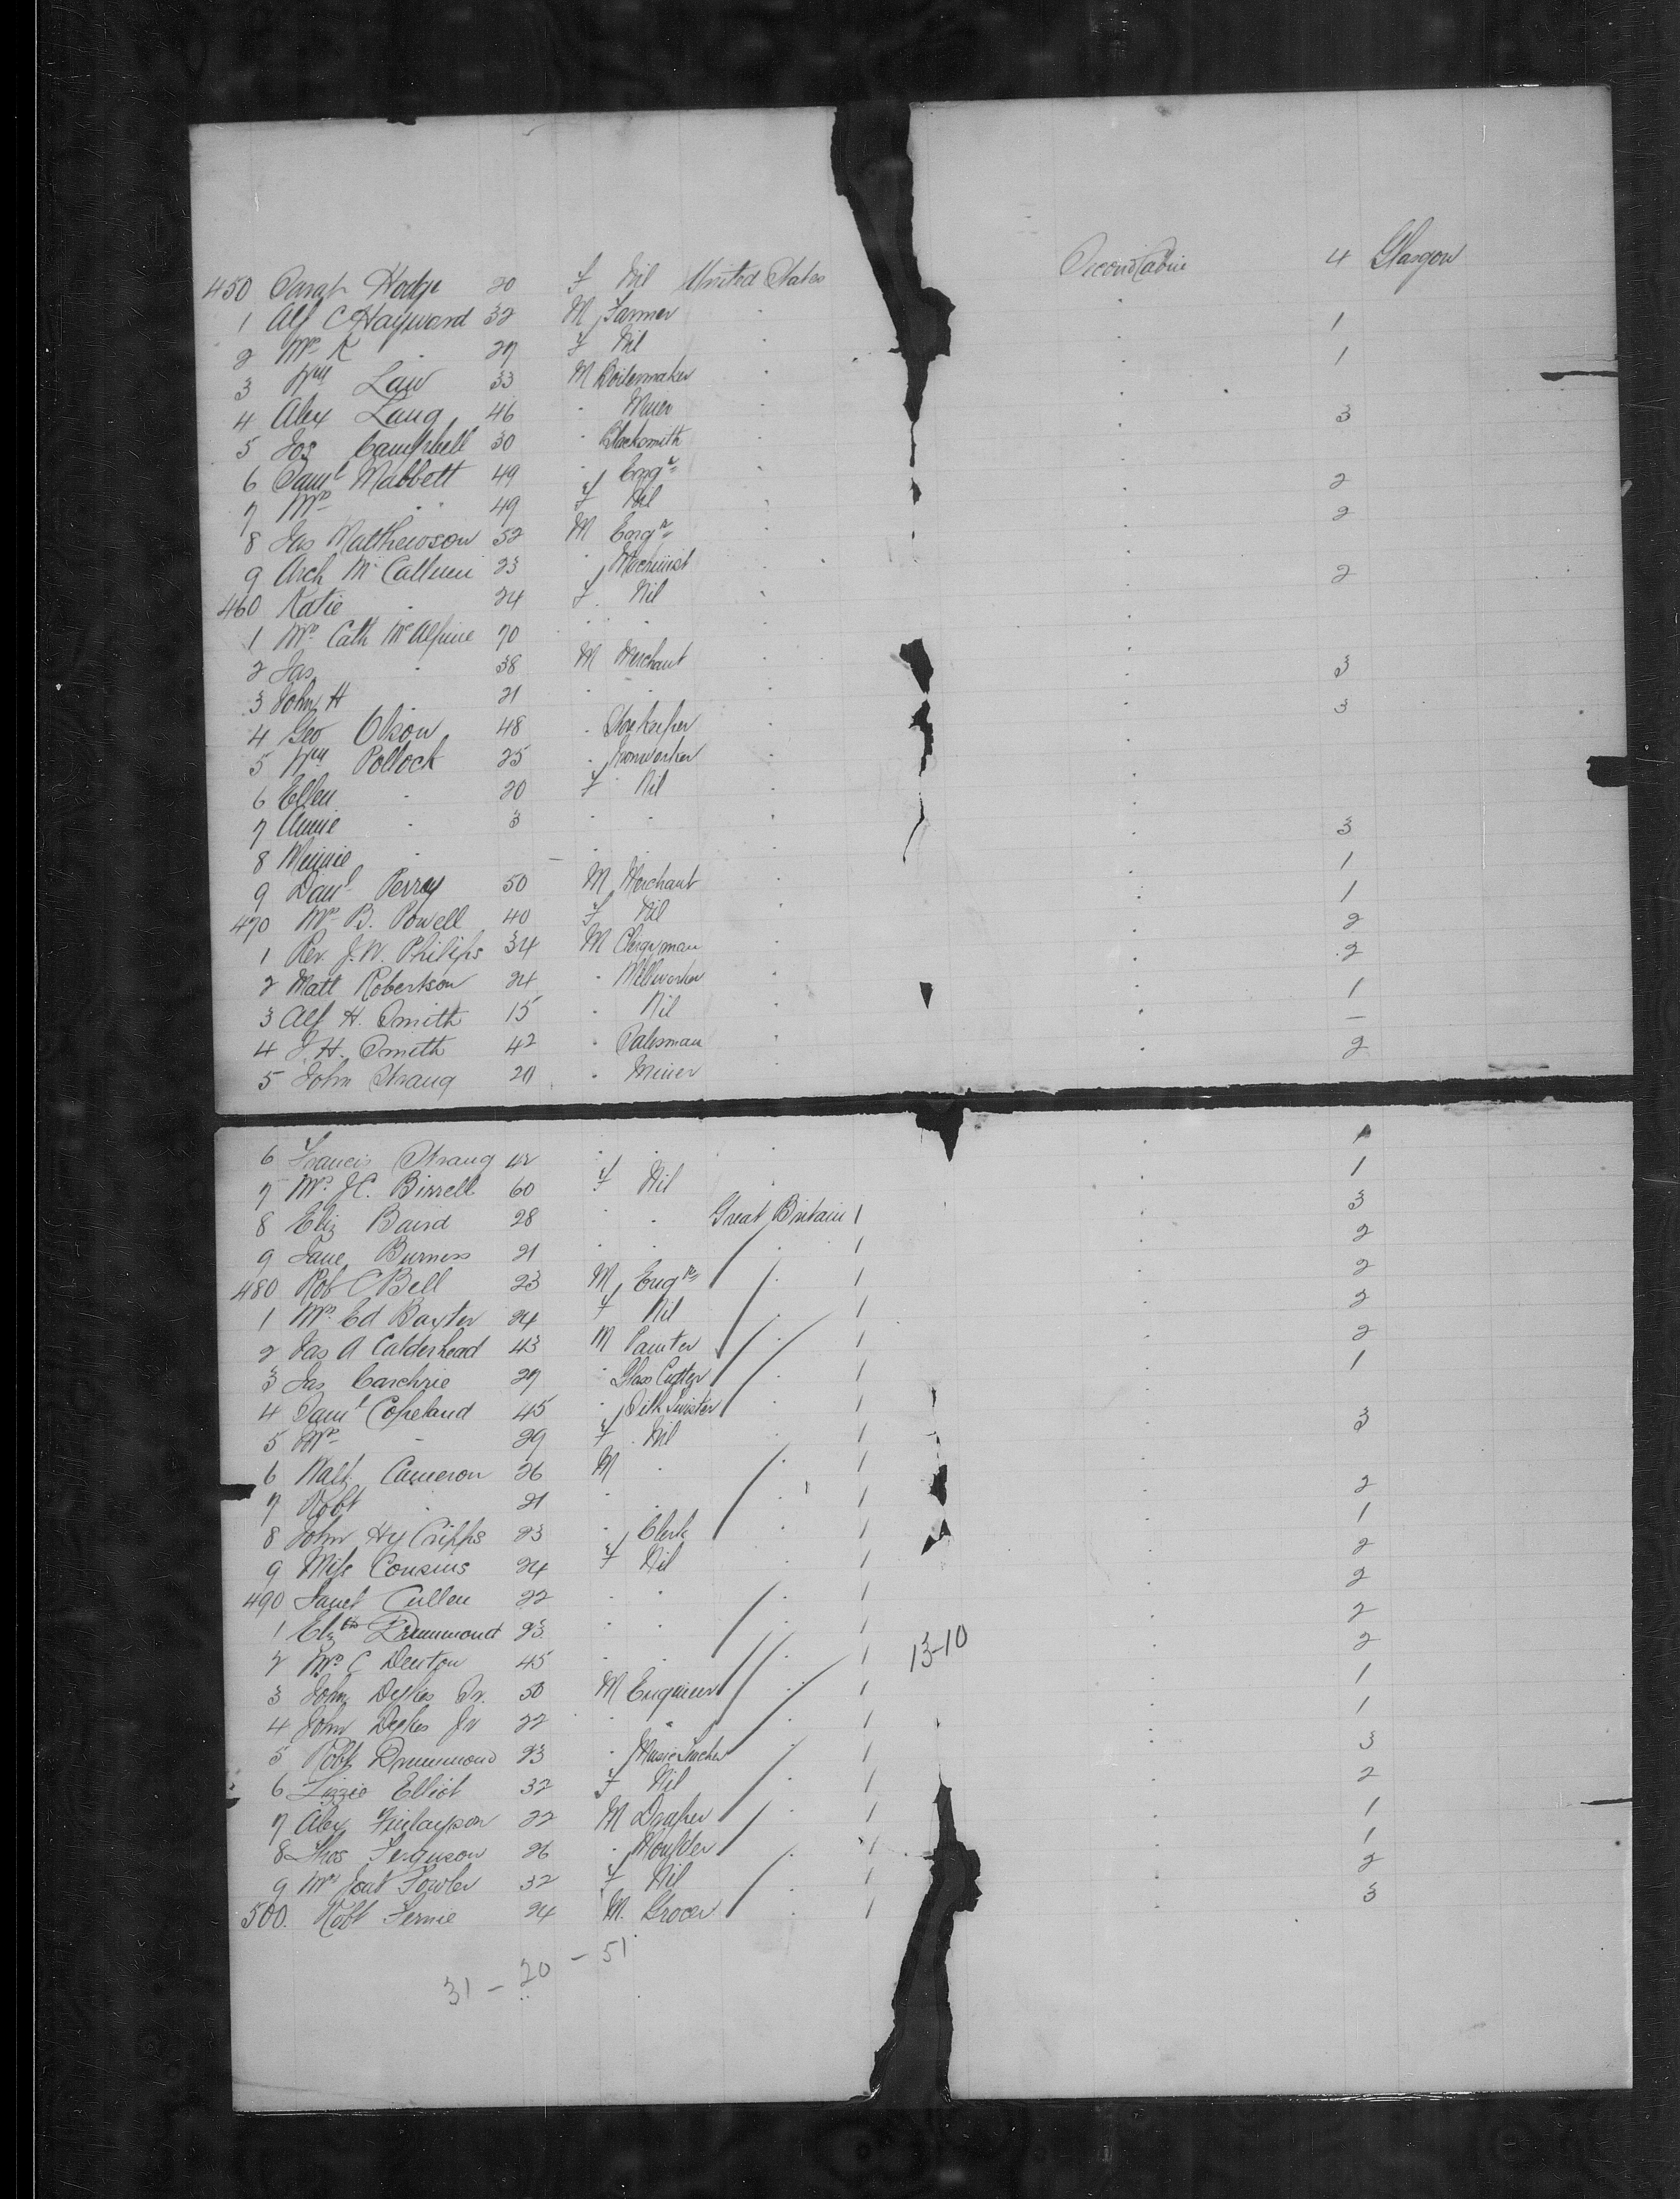 450 Sarah Hodge 20 F Nil United States Second Cabin 4 Glasgow
1 Alf C Hayward 32 M Farmer " " 1
2 Mrs K " 27 F Nil " " 1
3 Wm Law 33 M Boilermaker " "
4 Alex Laug 46 " Miner " " 3
5 Jos Campbell 30 " Blacksmith " "
6 Saml Mabbett 49 " Engr " " 2
7 Mrs " 49 F Nil " " 2
8 Jas Matthewson 52 M Engr " "
9 Arch McCallum 23 " Machinist " " 2
460 Katie " 24 F Nil " "
1 Mrs Cath McAlpine 70 " " "
2 Jas " 38 M Merchant " " 3
3 John H " 21 " " " " 3
4 Geo Olson 48 " Storekeeper " "
5 Wm Pollock 25 " Ironworker " "
6 Ellen " 20 F Nil " "
7 Annie " 3 " " " " 3
8 Minnie " — " " " 1
9 Danl Perray 50 M Merchant " " 1
470 Mrs B. Powell 40 F Nil " " 2
1 Rev. J. W. Philips 34 M Clergyman " " 2
2 Matt Robertson 24 " Millworker " " 1
3 Alf H. Smith 15 " Nil " " —
4 J. H. Smith 42 " Salesman " " 2
5 John Strang 20 " Miner "
6 Francis Strang 42 " " " " 1
7 Mrs J C. Birrell 60 F Nil " 1
8 Eliz Baird 28 " " Great Britain 1 " 3
9 Jane Burness 21 " " " 1 " 2
480 Rob C Bell 23 M Engr " 1 " 2
1 Mrs Ed Baxter 24 F Nil " 1 " 2
2 Jas A Calderhead 43 M Painter " 1 " 2
3 Jas 27 " Glass Cutter " 1 " 1
4 Saml Copeland 45 " Silk Twister " 1
5 Mrs " 29 F Nil " 1 " 3
6 Walt Cameron 26 M " " 1
7 Robt " 21 " " " 1 " 2
8 John Hy Cripps 23 " Clerk " 1 " 1
9 Miss Cousins 24 F Nil " 1 " 2
490 Janet Cullen 22 " " " 1 " 2
1 Elizth Drummond 23 " " " 1 " 2
2 Mrs C Denton 45 " " " 1 13-10 " 2
3 John Dykes Sr. 50 M Engineer " 1 " 1
4 John Dykes Jr 22 " " " 1 " 1
5 Robt Drummond 23 " Music Teacher " 1 " 3
6 Lizzie Elliot 32 F Nil " 1 " 2
7 Alex Finlayson 22 M Draper " 1 " 1
8 Thos Ferguson 26 " Moulder " 1 " 1
9 Mrs Fowler 32 F Nil " 1 " 2
500. Robt Fernie 24 M. Grocer " 1 " 3
31 – 20 – 51